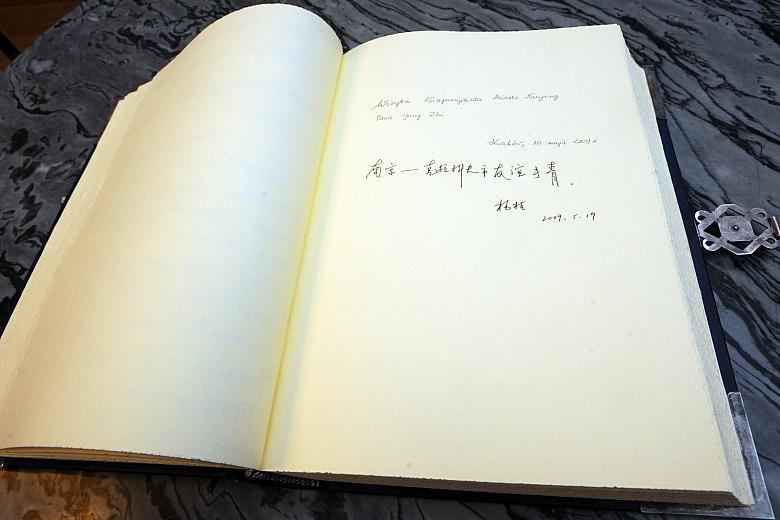 Wizyta Wiceprezydenta Miasta Nanjing
Pana Yang Zhi
Kraków, 18 maja 2009 r.
南京—克拉科夫市友谊长青。
杨植
2009. 5. 19